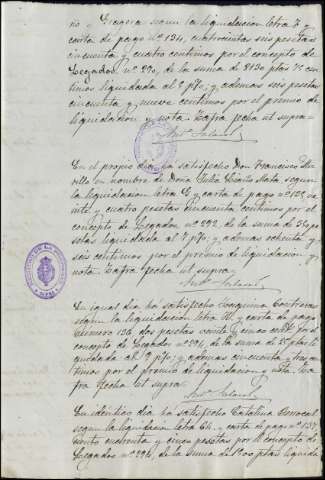 no y Graçera segun la liquidacion letra F y
carta de pago nº 134, cuatrocientas seis pesetas
cincuenta y cuatro centimos por el concepto de
Legados nº 290, de la suma de 8130 ptas 75 cen
timos liquidada al 5 p%, y ademas seis pesetas
cincuenta y nueve centimos por el premio de
liquidacion y nota. Zafra fecha ut supra=
En el propio dia ha satisfecho Don Francisco
villo en nombre de Doña Julia Mata segun
la liquidacion letra G y carta de pago nº 125
y cuatro pesetas cincuenta centimos por el
concepto de Legados nº 292, de la suma de
setas liquidada al p%, y ademas ochenta y
seis centimos por el premio de liquidacion y
nota. Zafra fecha ut supra=
En igual dia ha satisfecho Joaquina Contreras
segun la liquidacion letra M y carta de pago
numero 136 dos pesetas veinte y cinco cent. por el
concepto de Legados nº 294, de la suma de 25 ptas li
quidada al 9 p%, y ademas cincuenta y tres cen
timos por el premio de liquidacion y nota. Za
fra fecha ut supra=
En identico dia ha satisfecho Catalina Berrocal
segun la liquidacion letra Ch y carta de pago nº 137
ciento cuarenta y cinco pesetas por el concepto de
Legados nº 296, de la suma de ptas liquida